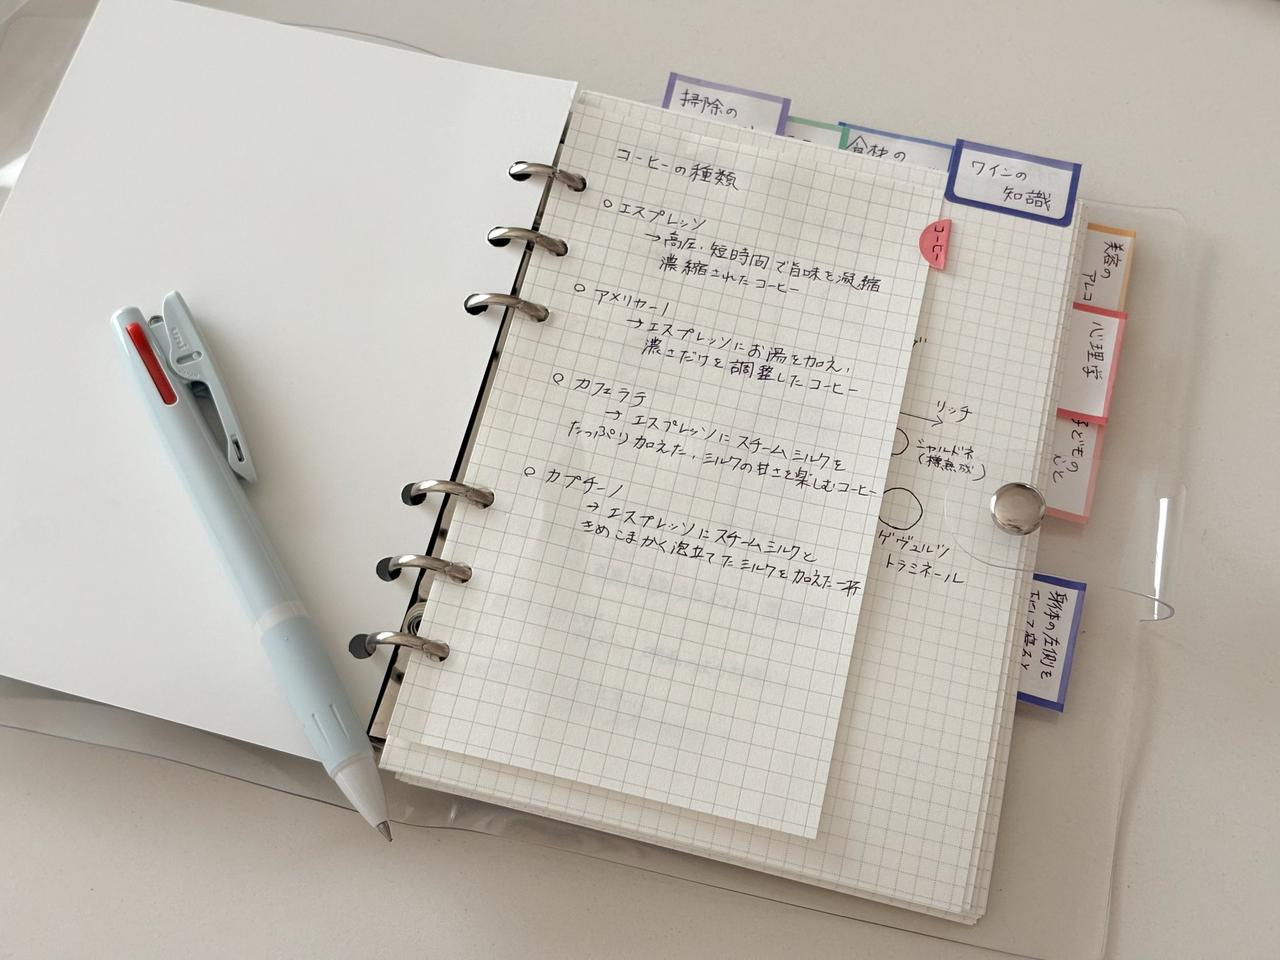 掃除の
食材の
ワインの
知識
コーヒーの種類
○ エスプレッソ
→高圧、短時間で旨味を凝縮
濃縮されたコーヒー
○ アメリカーノ
→エスプレッソにお湯を加え、
濃さだけを調整したコーヒー
○ カフェラテ
→ エスプレッソにスチームミルクを
たっぷり加えた、ミルクの甘さを楽しむコーヒー
○ カプチーノ
→ エスプレッソにスチームミルクと
きめこまかく泡立てたミルクを加えた一杯
コーヒー
リッチ
シャルドネ
(樽熟成)
ゲヴュルツ
トラミネール
美容の
アレコ
心理学
子どもの
こと
身体の左側を
uni